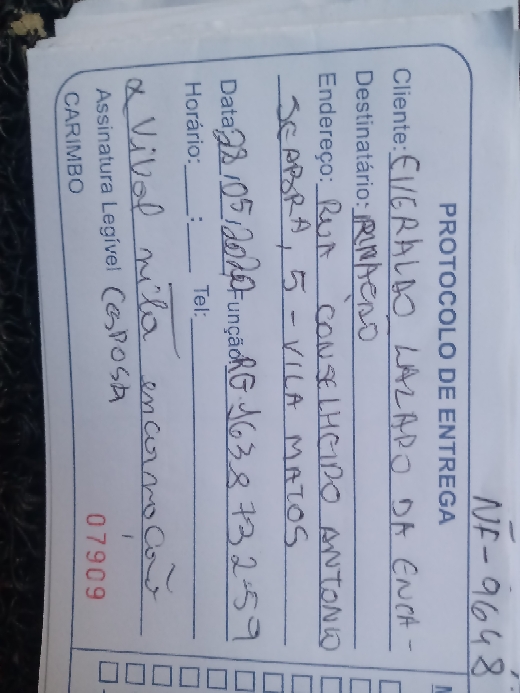 NF-9648
PROTOCOLO DE ENTREGA
Cliente: EVERALDO LAZARO DA ENCA-
Destinatário: RNAÇÃO
Endereço: RUA CONSELHEIRO ANTONIO
SEABRA, 5 - VILA MATOS
Data: 28/05/2020 Função RG.
Horário: : Tel:
encarnacão
Assinatura Legível esposa
CARIMBO 07909